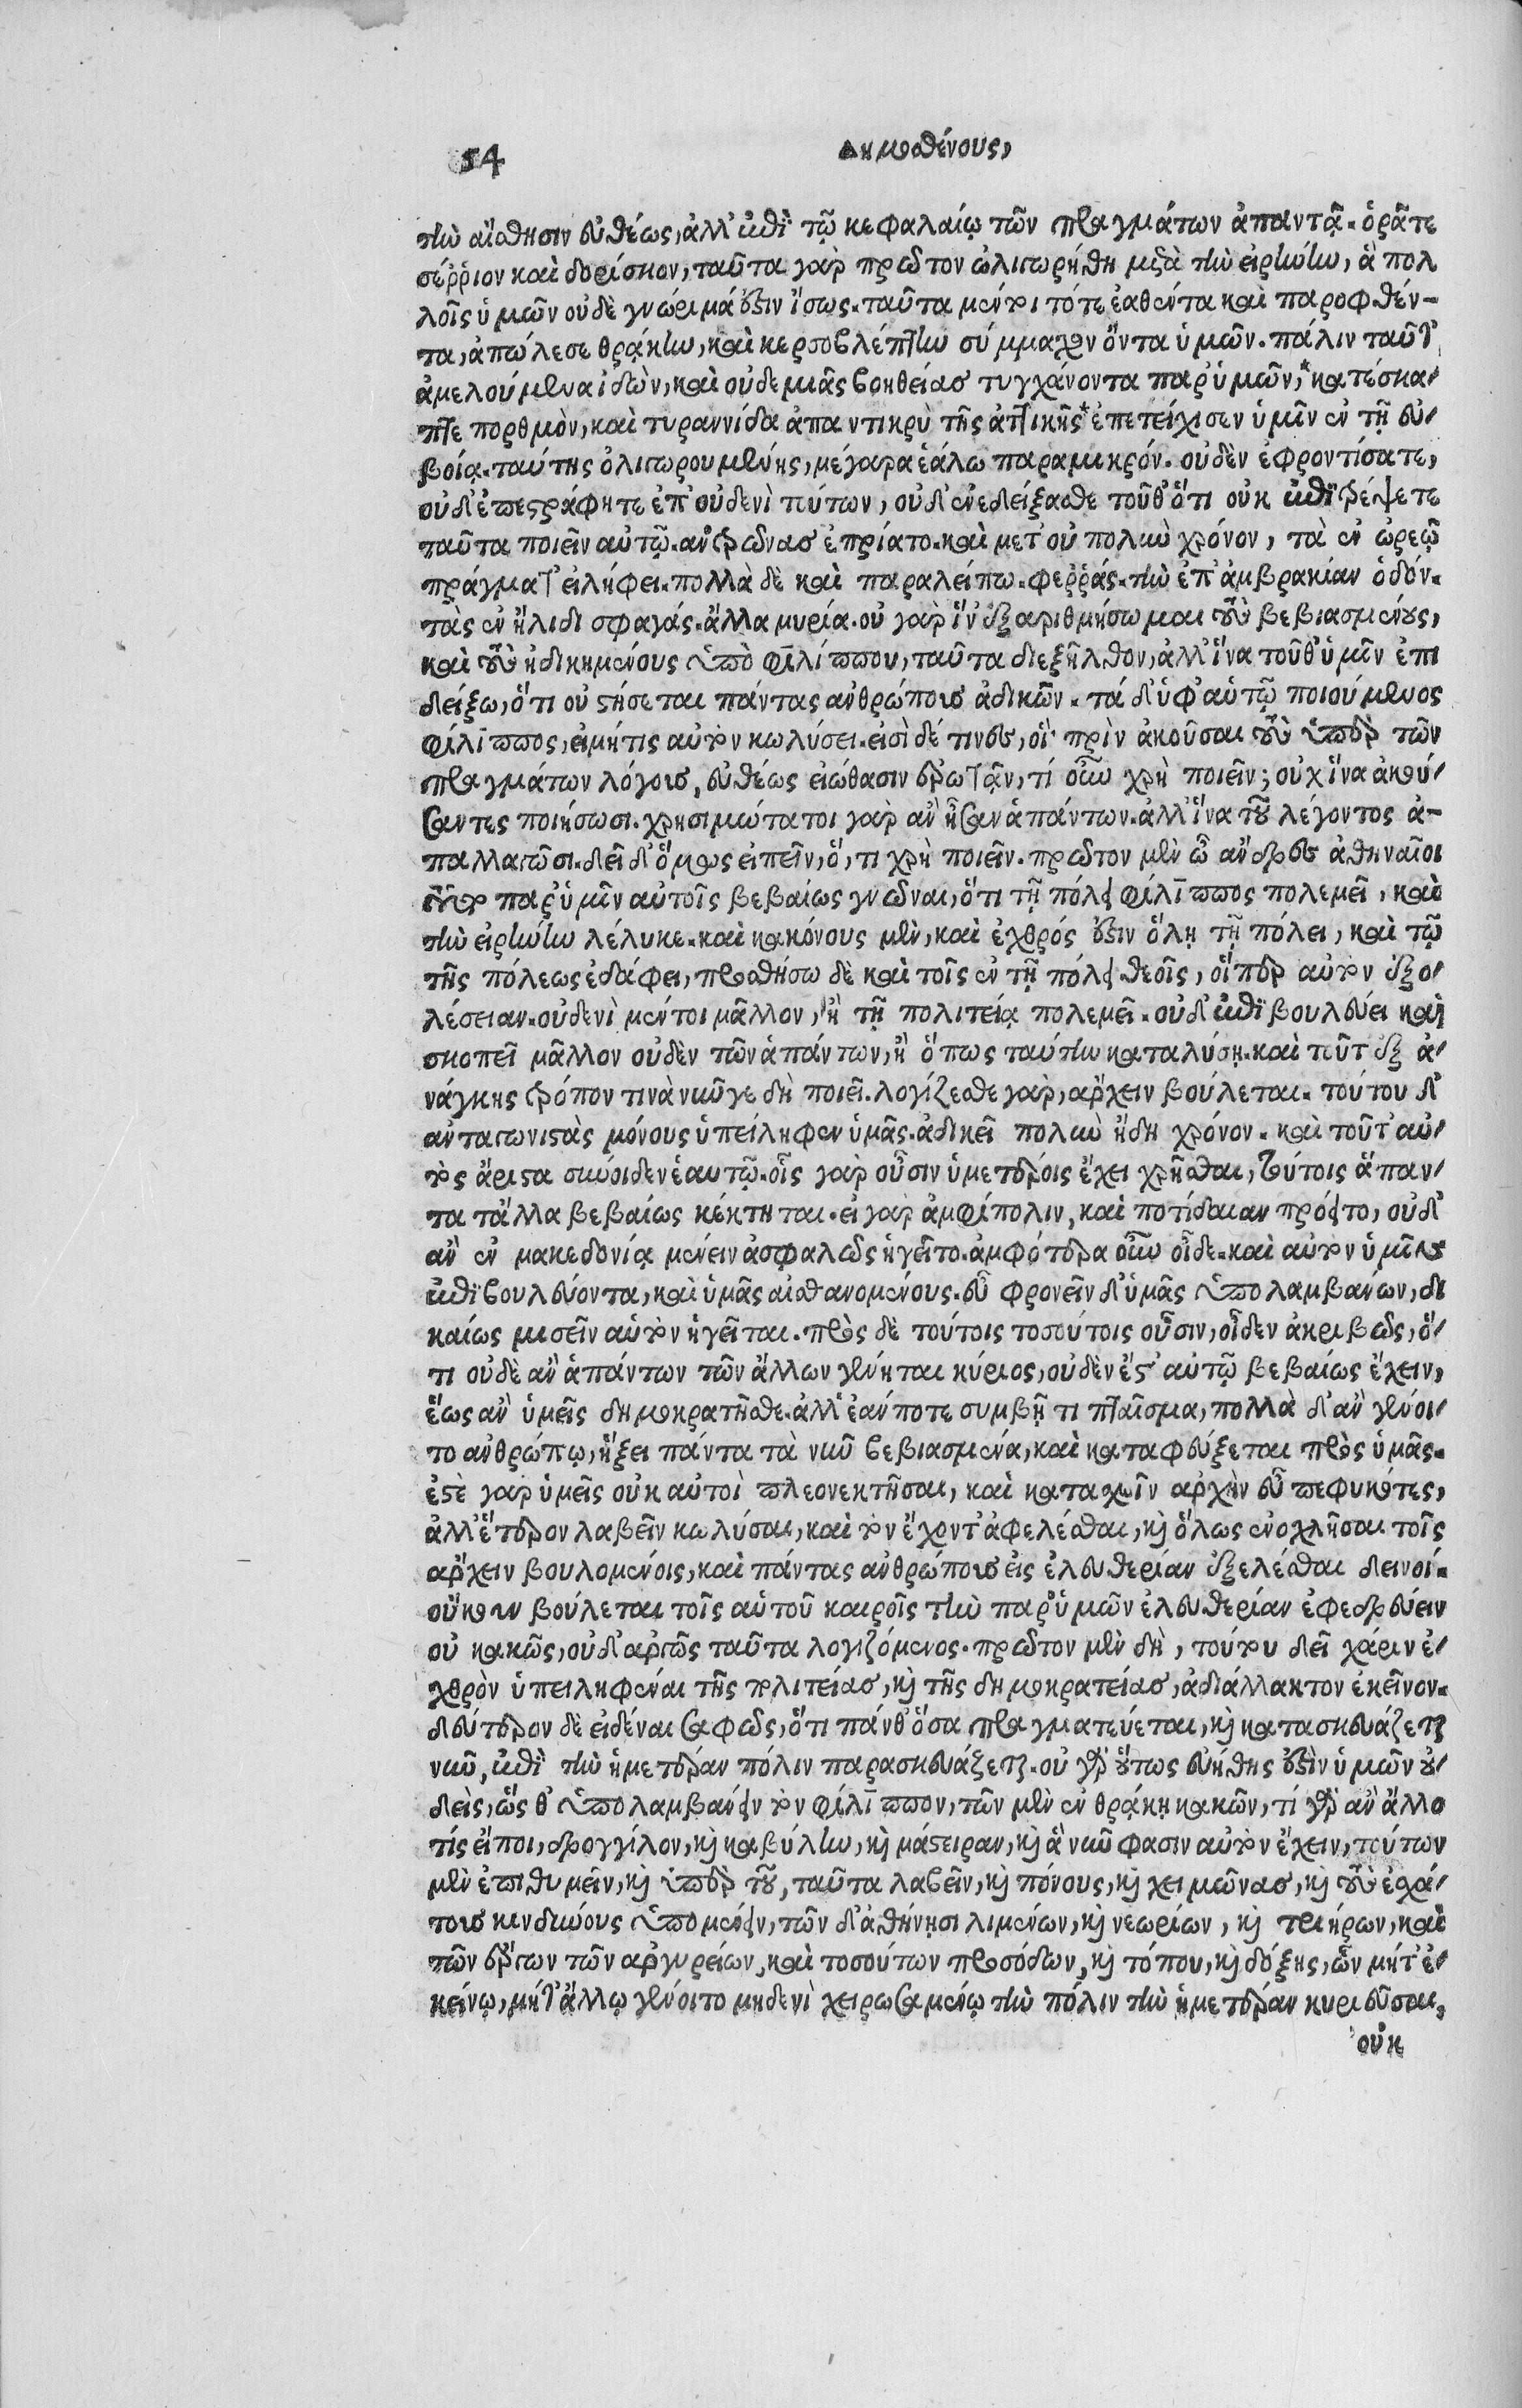 54
Δημοσθένους,
τὴν αἴσθησιν εὐθέως, ἀλλ' ἐπὶ τῷ κεφαλαίῳ τῶν πραγμάτων ἀπαντᾷ. ὁρᾶτε
σέρῥιον καὶ δορίσκον, ταῦτα γὰρ πρῶτον ὠλιγωρήθη μετὰ τὴν εἰρήνην, ἃ πολ
λοῖς ὑμῶν οὐδὲ γνώριμά ἐστιν ἴσως. ταῦτα μέντοι τότε ἐαθέντα καὶ παροφθέν-
τα, ἀπώλεσε θρᾴκην, καὶ κερσοβλέπτην σύμμαχον ὄντα ὑμῶν. πάλιν ταῦτ'
ἀμελούμενα ἰδὼν, καὶ οὐδεμιᾶς βοηθείας τυγχάνοντα παρ' ὑμῶν,* κατέσκα-
πτε πορθμὸν, καὶ τυραννίδα ἀπαντικρὺ τῆς ἀττικῆς* ἐπετείχισεν ὑμῖν ἐν τῇ εὐ-
βοίᾳ. ταύτης ὀλιγωρουμένης, μέγαρα ἑάλω παραμικρόν. οὐδὲν ἐφροντίσατε,
οὐδ' ἐπεστράφητε ἐπ' οὐδενὶ τούτων, οὐδ' ἐνεδείξασθε τοῦθ' ὅτι οὐκ ἐπιτρέψετε
ταῦτα ποιεῖν αὐτῷ. ἀντρῶνας ἐπρίατο. καὶ μετ' οὐ πολὺν χρόνον, τὰ ἐν ὠρεῷ
πράγματ' εἰλήφει. πολλὰ δὲ καὶ παραλείπω. φεῤῥάς. τὴν ἐπ' ἀμβρακίαν ὁδόν.
τὰς ἐν ἤλιδι σφαγάς. ἄλλα μυρία. οὐ γὰρ ἵν' ἐξαριθμήσωμαι τοὺς βεβιασμένους,
καὶ τοὺς ἠδικημένους ὑπὸ φιλίππου, ταῦτα διεξῆλθον, ἀλλ' ἵνα τοῦθ' ὑμῖν ἐπι
δείξω, ὅτι οὐ στήσεται πάντας ἀνθρώπους ἀδικῶν. τά δ' ὑφ' αὑτῷ ποιούμενος
φίλιππος, εἰ μήτις αὐτὸν κωλύσει. εἰσὶ δέ τινες, οἳ πρὶν ἀκοῦσαι τοὺς ὑπὲρ τῶν
πραγμάτων λόγους, εὐθέως εἰώθασιν ἐρωτᾷν, τί οὖν χρὴ ποιεῖν; οὐχ ἵνα ἀκού-
σαντες ποιήσωσι. χρησιμώτατοι γὰρ ἂν ἦσαν ἁπάντων. ἀλλ' ἵνα τοῦ λέγοντος ἀ-
παλλαγῶσι. δεῖ δ' ὅμως εἰπεῖν, ὅ, τι χρὴ ποιεῖν. πρῶτον μὲν ὦ ἄνδρες ἀθηναῖοι
τοῦτο παρ' ὑμῖν αὐτοῖς βεβαίως γνῶναι, ὅτι τῇ πόλει φίλιππος πολεμεῖ, καὶ
τὴν εἰρήνην λέλυκε. καὶ κακόνους μὲν, καὶ ἐχθρός ἐστιν ὅλῃ τῇ πόλει, καὶ τῷ
τῆς πόλεως ἐδάφει, προσθήσω δὲ καὶ τοῖς ἐν τῇ πόλει θεοῖς, οἵπερ αὐτὸν ἐξο-
λέσειαν. οὐδενὶ μέντοι μᾶλλον, ἢ τῇ πολιτείᾳ πολεμεῖ. οὐδ' ἐπιβουλεύει καὶ
σκοπεῖ μᾶλλον οὐδὲν τῶν ἁπάντων, ἢ ὅπως ταύτην καταλύσῃ. καὶ τοῦτ' ἐξ ἀ-
νάγκης τρόπον τινὰ νῦν γε δὴ ποιεῖ. λογίζεσθε γὰρ, ἄρχειν βούλεται. τούτου δ'
ἀνταγωνιστὰς μόνους ὑπείληφεν ὑμᾶς. ἀδικεῖ πολὺν ἤδη χρόνον. καὶ τοῦτ' αὐ-
τὸς ἄριστα σύνοιδεν ἑαυτῷ. οἷς γὰρ οὖσιν ὑμετέροις ἔχει χρῆσθαι, τούτοις ἅπαν-
τα τἄλλα βεβαίως κέκτηται. εἰ γὰρ ἀμφίπολιν, καὶ ποτίδαιαν πρόειτο, οὐδ'
ἂν ἐν μακεδονίᾳ μένειν ἀσφαλῶς ἡγεῖτο. ἀμφότερα οὖν οἶδε. καὶ αὐτὸν ὑμῖν
ἐπιβουλεύοντα, καὶ ὑμᾶς αἰσθανομένους. εὖ φρονεῖν δ' ὑμᾶς ὑπολαμβάνων, δι
καίως μισεῖν αὐτὸν ἡγεῖται. πρὸς δὲ τούτοις τοσούτοις οὖσιν, οἶδεν ἀκριβῶς, ὅ-
τι οὐδὲ ἂν ἁπάντων τῶν ἄλλων γένηται κύριος, οὐδὲν ἔστ' αὐτῷ βεβαίως ἔχειν,
ἕως ἂν ὑμεῖς δημοκρατῆσθε. ἀλλ' ἐάν ποτε συμβῇ τι πταῖσμα, πολλὰ δ' ἂν γένοι-
το ἀνθρώπῳ, ἥξει πάντα τὰ νῦν βεβιασμένα, καὶ καταφεύξεται πρὸς ὑμᾶς.
ἐστὲ γὰρ ὑμεῖς οὐκ αὐτοὶ πλεονεκτῆσαι, καὶ κατασχεῖν ἀρχὴν εὖ πεφυκότες,
ἀλλ' ἕτερον λαβεῖν κωλύσαι, καὶ τὸν ἔχοντ' ἀφελέσθαι, καὶ ὅλως ἐνοχλῆσαι τοῖς
ἄρχειν βουλομένοις, καὶ πάντας ἀνθρώπους εἰς ἐλευθερίαν ἐξελέσθαι δεινοί.
οὔκουν βούλεται τοῖς αὑτοῦ καιροῖς τὴν παρ' ὑμῶν ἐλευθερίαν ἐφεδρεύειν
οὐ κακῶς, οὐδ' ἀργῶς ταῦτα λογιζόμενος. πρῶτον μὲν δὴ, τούτου δεῖ χάριν ἐ-
χθρὸν ὑπειληφέναι τῆς πολιτείας, καὶ τῆς δημοκρατείας, ἀδιάλλακτον ἐκεῖνον.
δεύτερον δὲ εἰδέναι σαφῶς, ὅτι πάνθ' ὅσα πραγματεύεται, καὶ κατασκευάζεται
νῦν, ἐπὶ τὴν ἡμετέραν πόλιν παρασκευάζεται. οὐ γὰρ οὕτως εὐήθης ἐστὶν ὑμῶν οὐ-
δεὶς, ὥς θ' ὑπολαμβάνειν τὸν φίλιππον, τῶν μὲν ἐν θρᾴκῃ κακῶν, τί γὰρ ἂν ἄλλο
τίς εἴποι, δρογγίλον, καὶ καβύλην, καὶ μάστειραν, καὶ ἃ νῦν φασιν αὐτὸν ἔχειν, τούτων
μὲν ἐπιθυμεῖν, καὶ ὑπὲρ τοῦ, ταῦτα λαβεῖν, καὶ πόνους, καὶ χειμῶνας, καὶ τοὺς ἐσχά-
τους κινδύνους ὑπομένειν, τῶν δ' ἀθήνησι λιμένων, καὶ νεωρίων, καὶ τριήρων, καὶ
τῶν ἔργων τῶν ἀργυρείων, καὶ τοσούτων προσόδων, καὶ τόπου, καὶ δόξης, ὧν μήτ' ἐ-
κείνῳ, μήτ' ἄλλῳ γένοιτο μηδενὶ χειρωσαμένῳ τὴν πόλιν τὴν ἡμετέραν κυριεῦσαι,
οὐκ